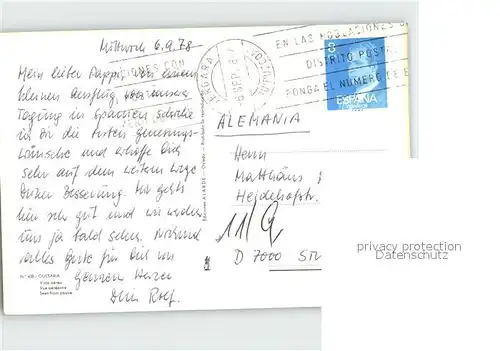 Mittwoch 6.9.78
Mein lieber Pappi, von einem
kleinen Ausflug,
Tagung in Spanien schicke
ich Dir die besten Genesungs-
wünsche und erhoffe Dich
sehr auf dem weiteren Wege
Deiner Besserung. Mir geht's
hier sehr gut und wir werden
uns ja bald sehen. Nochmal
alles Gute für Dich von
Ganzem Herzen
Dein Rolf.
N.º 438 - GUETARIA
Vista aérea
Vue aérienne
Seen from plane
Ediciones ALARDE - Oviedo
VERGARA
6 SEP. 78
EN LAS POBLACIONES C
DISTRITO POSTAL
PONGA EL NUMERO DE E
8
ESPAÑA
ALEMANIA
Herrn
Matthäus
Heidehofstr.
11/9
D 7000 ST
privacy protection
Datenschutz